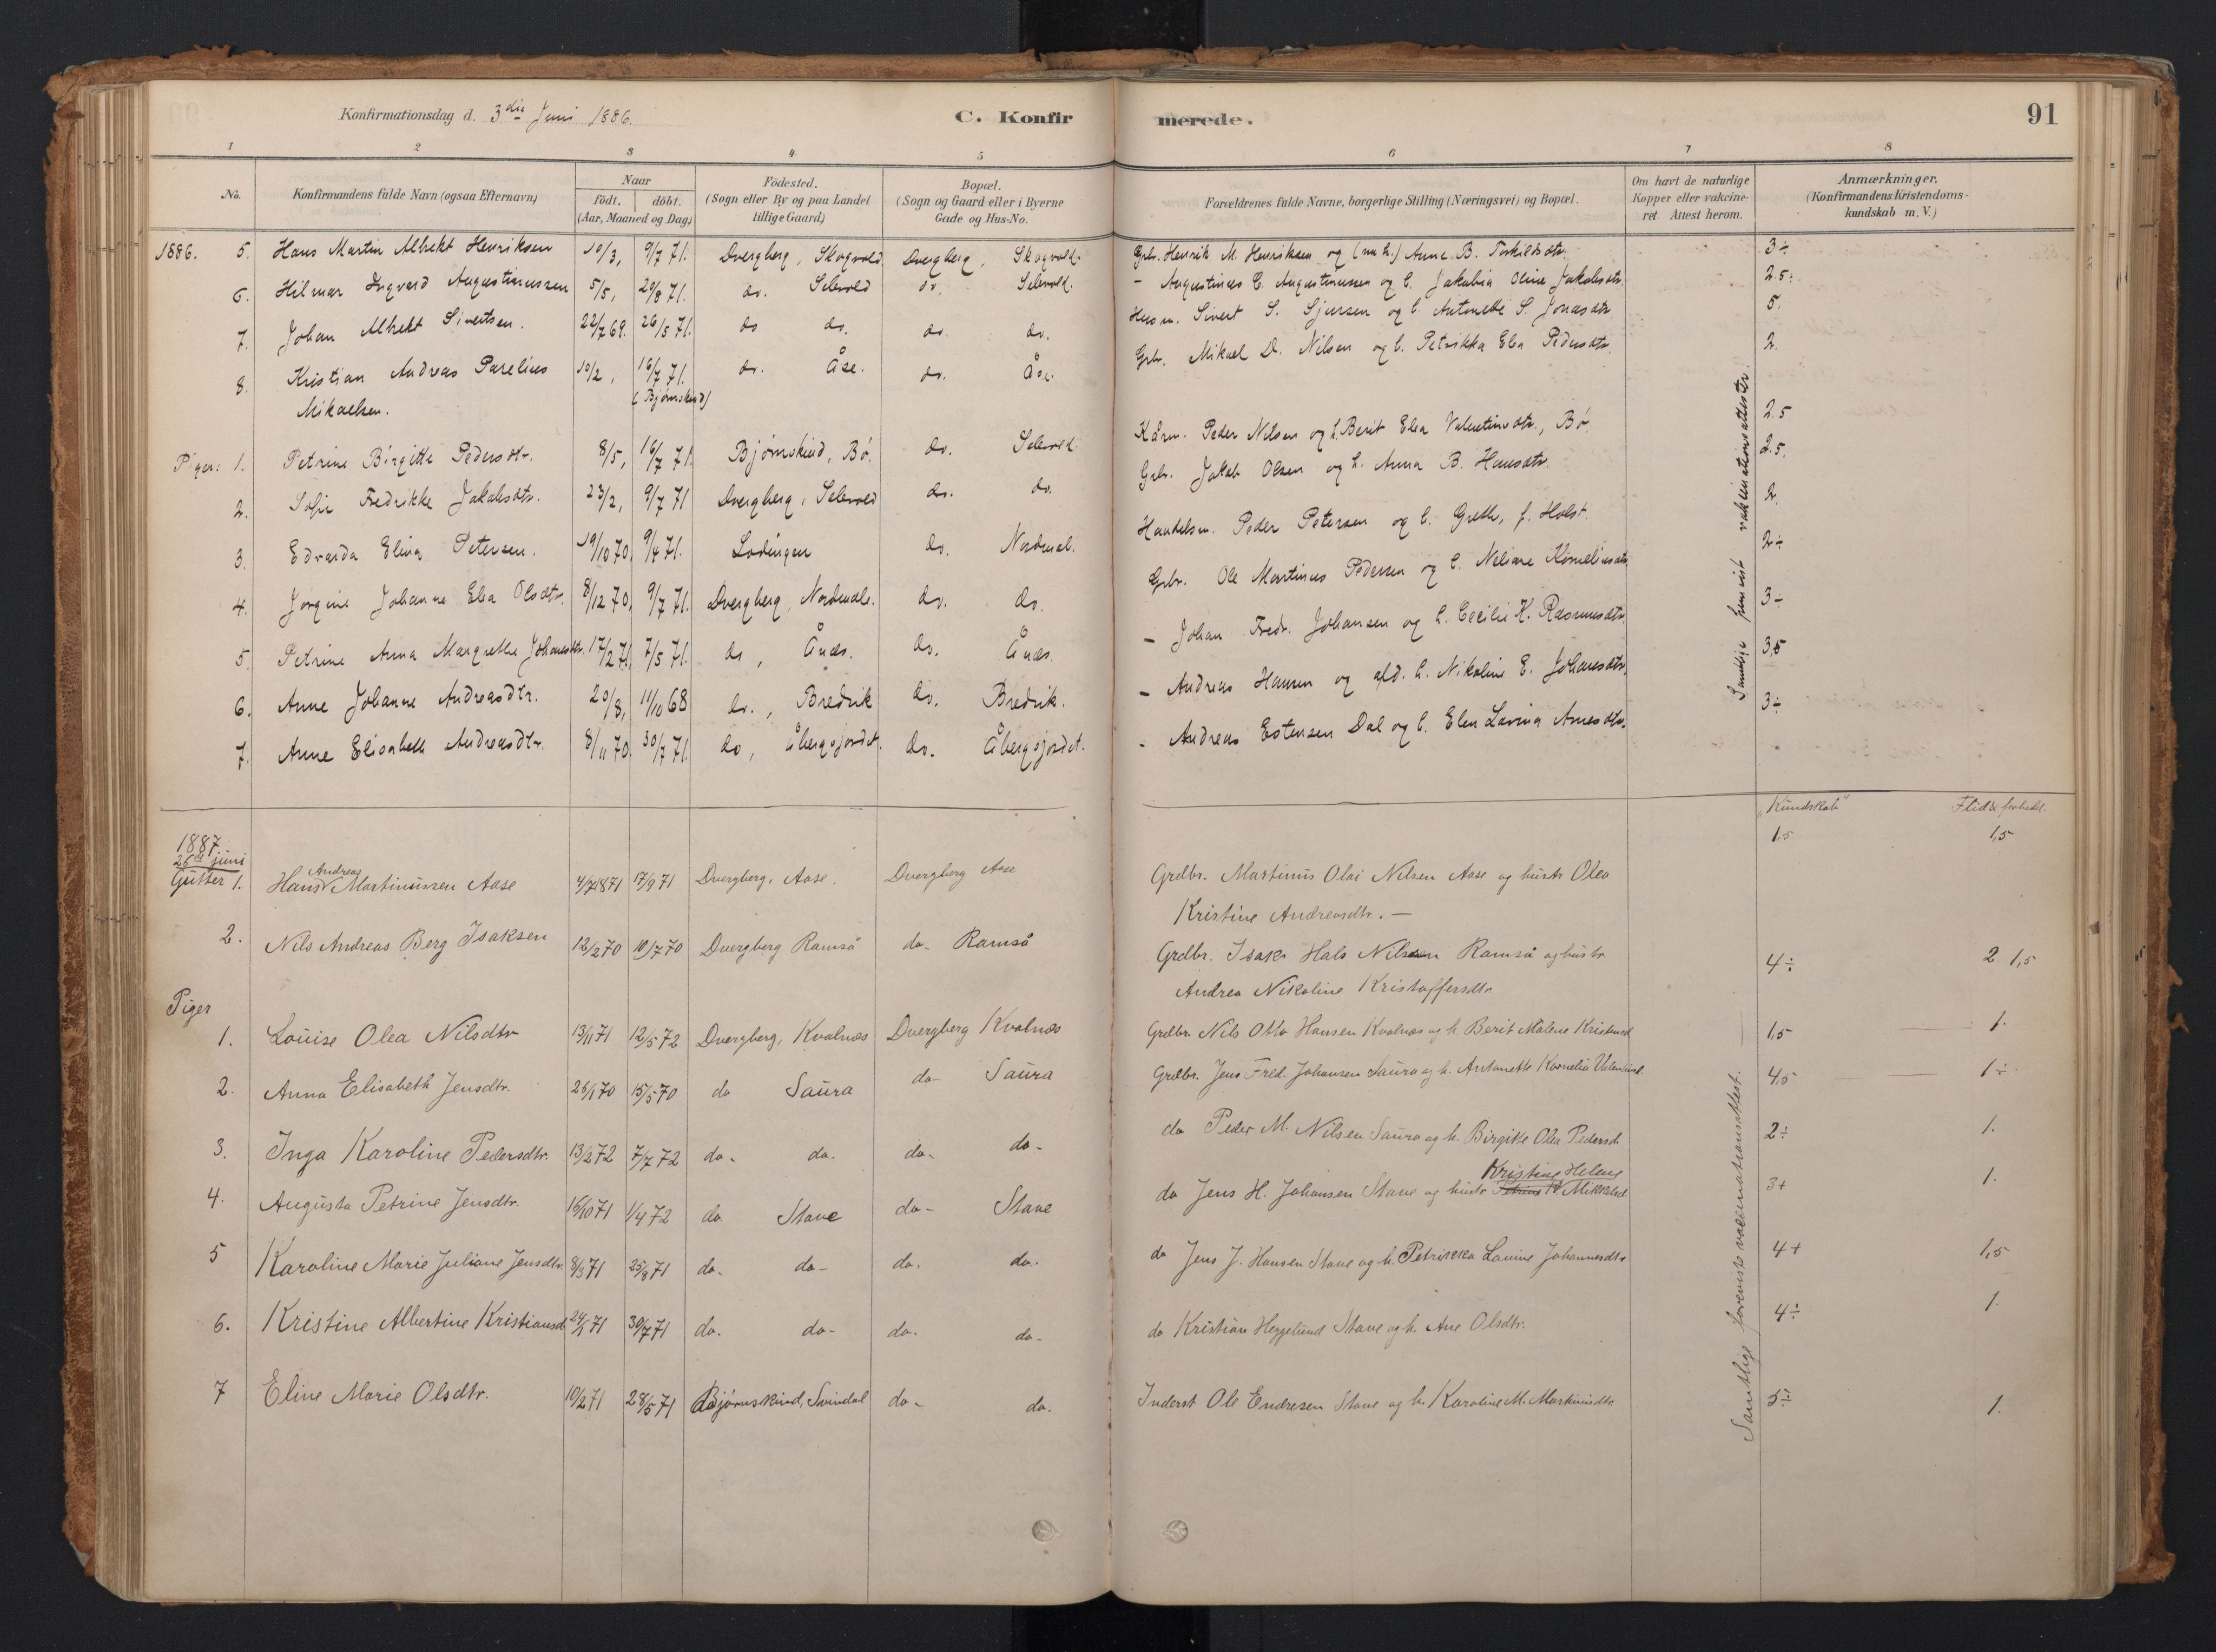 Konfirmationsdag d. 3die Juni 1886. C. Konfirmerede. 91
1 2 3 4 5 6 7 8
No. Konfirmandens fulde Navn (ogsaa Efternavn) Naar født. døbt. (Aar, Maaned og Dag) Födested. (Sogn eller By og paa Landet tillige Gaard) Bopæl. (Sogn og Gaard eller i Byerne Gade og Hus-No. Forældrenes fulde Navne, borgerlige Stilling (Næringsvei) og Bopæl. Om havt de naturlige Kopper eller vakcineret Attest herom. Anmærkninger. (Konfirmandens Kristendomskundskab m. V.)
1886. 5. Hans Martin Albrekt Henriksen 10/3, 9/7 71. Dvergberg, Skogvold Dvergberg, Skogvold. Grbr. Henrik M. Henriksen og (nu h.) Anne B. Torkildsdtr. 3÷
6. Hilmar Ingvard Augustinussen 5/5, 20/8 71. do. Selvold do. Selvold. - Augustinus C. Augustinussen og h. Jakobia Oline Jakobsdtr. 2.5.
7. Johan Albrekt Sivertsen. 22/7 69. 26/5 71. do do. do. do. Husm. Sivert S. Sjursen og h. Antonette S. Jonasdtr. 5.
8. Kristian Andreas Parelius 10/2, 16/7 71. do. Åse. do. Åse. Grbr. Mikael D. Nilsen og h. Petrikka Elea Pedersdtr. 2.
Mikaelsen. (Bjørnskind)
Piger: 1. Petrine Birgitte Pedersdtr. 8/5, 16/7 71. Bjørnskind, Bø. do. Selvold Kårm. Peder Nilsen og h. Berit Elea Valentinsdtr., Bø. 2.5
2. Sofie Fredrikke Jakobsdtr. 23/2, 9/7 71 Dvergberg, Selvold do. do. Grbr. Jakob Olsen og h. Anna B. Hansdtr. 2.5.
3. Edvarda Elina Petersen. 19/10 70, 9/4 71. Lødingen do. Nordmel. Handelsm. Peder Petersen og h. Grethe, f. Holst 2.
4. Jørgine Johanne Elea Olsdtr. 8/12 70, 9/7 71. Dvergberg, Nordmele. do. do. Grbr. Ole Martinus Pedersen og h. Neliane Korneliusdtr. 2÷
5. Petrine Anna Margrethe Johansdtr. 17/2 71. 7/5 71. do, Ånæs. do. Ånæs. - Johan Fredr. Johansen og h. Cecilie K. Rasmusdtr. 3÷
6. Anne Johanne Andreasdtr. 20/8, 11/10 68 do., Bredvik do. Bredvik. - Andreas Hansen og afd. h. Nikoline E. Johansdtr. 3,5
7. Anne Elisabeth Andreasdtr. 8/11 70. 30/7 71. do, Åbergsjordet. do. Åbergsjordet. - Andreas Estensen Dal og h. Elen Lavina Arnesdtr. 3÷
Samtlige fremvist vakcinationsattester
1887. "Kundskab" Flid & forhold.
26de juni
Gutter 1. Hans Andreas Martinussen Aase 4/7 1871 17/9 71 Dvergberg, Aase. Dvergberg Aase Grdbr. Martinus Olai Nilsen Aase og hustr Olea 1,5 1,5
Kristine Andreasdtr. —
2. Nils Andreas Berg Isaksen 12/2 70 10/7 70 Dvergberg Ramså do- Ramså Grdbr. Isak Hals Nilsen Ramså og hustr 4÷ 2 1,5
Andrea Nikoline Kristoffersdtr
Piger
1. Louise Olea Nilsdtr 13/11 71 12/5 72 Dvergberg, Kvalnæs Dvergberg Kvalnæs Grdbr. Nils Otto Hansen Kvalnæs og h. Berit Malene Kristensd 1,5 1.
2. Anna Elisabeth Jensdtr. 26/1 70 15/5 70 do Saura do- Saura Grdbr. Jens Fred. Johansen Saura og h. Antonette Kornelia Valentinsd 4,5 1÷
3. Inga Karoline Pedersdtr. 13/2 72 7/7 72 do- do. do- do- do Peder M. Nilsen Saura og h. Birgitte Olea Pedersd. 2÷ 1.
4. Augusta Petrine Jensdtr. 16/10 71 1/4 72 do. Stave do- Stave do Jens H. Johansen Stave og hustr Petrine H Kristine Helene Mikkelsd 3+ 1.
5 Karoline Marie Juliane Jensdtr. 8/3 71 25/8 71 do- do- do. do. do Jens J. Hansen Stave og h. Petrikka Lavine Johannesdtr 4+ 1,5
6. Kristine Albertine Kristiansd 24/1 71 30/7 71 do. do- do. do- do Kristian Heggelund Stave og h. Ane Olsdtr. 4÷ 1.
7 Eline Marie Olsdtr. 10/2 71 28/5 71 Bjørnskind, Svindal do- do. Inderst Ole Endresen Stave og h. Karoline M. Markusdtr 5÷ 1.
Samtlige foreviste vaccinationsattest.